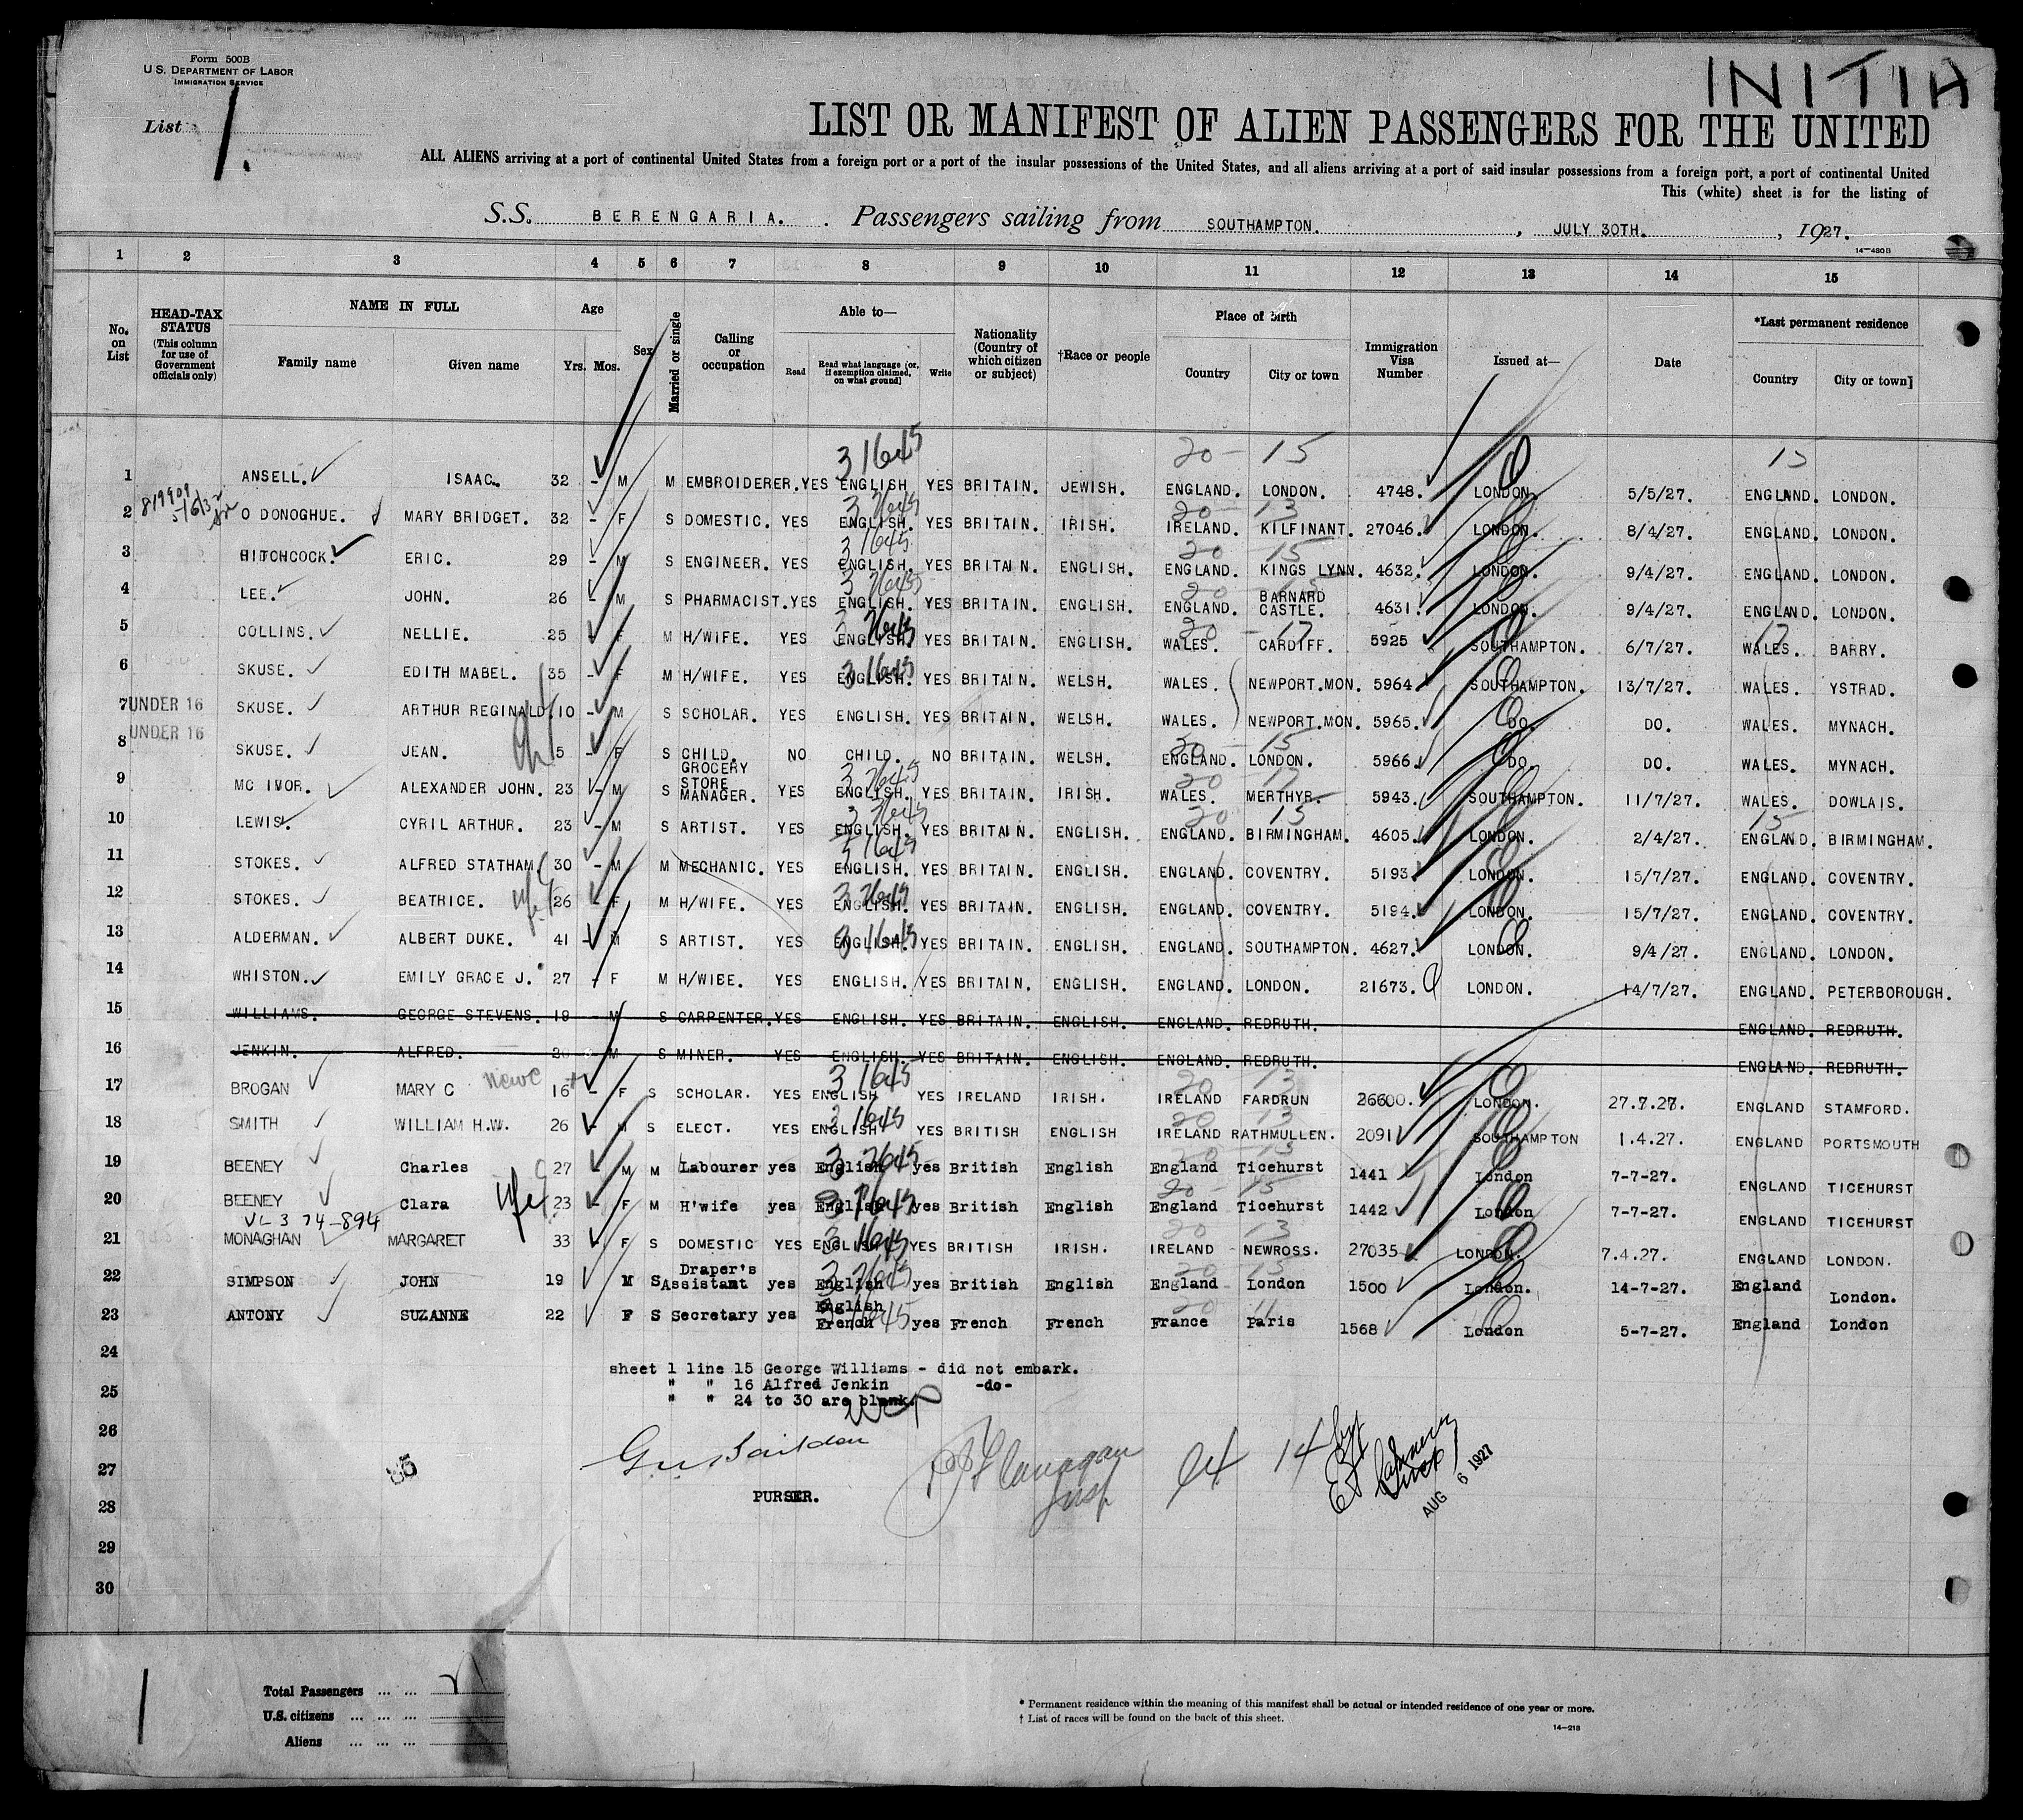 Form 500B
U.S. DEPARTMENT OF LABOR
IMMIGRATION SERVICE
INITIA
List 1.
LIST OR MANIFEST OF ALIEN PASSENGERS FOR THE UNITED
ALL ALIENS arriving at a port of continental United States from a foreign port or a port of the insular possessions of the United States, and all aliens arriving at a port of said insular possessions from a foreign port, a port of continental United
This (white) sheet is for the listing of
S.S. BERENGARIA. Passengers sailing from SOUTHAMPTON. , JULY 30TH. , 1927.
14—480B
1 2 3 4 5 6 7 8 9 10 11 12 13 14 15
No. on List
HEAD-TAX STATUS (This column for use of Government officials only)
NAME IN FULL
Family name Given name
Age
Yrs. Mos.
Sex
Married or single
Calling or occupation
Able to—
Read Read what language (or, if exemption claimed, on what ground) Write
Nationality (Country of which citizen or subject)
†Race or people
Place of birth
Country City or town
Immigration Visa Number
Issued at—
Date
*Last permanent residence
Country City or town]
1 ANSELL. ISAAC. 32 - M M EMBROIDERER. YES ENGLISH YES BRITAIN. JEWISH. ENGLAND. LONDON. 4748. LONDON. 5/5/27. ENGLAND. LONDON.
2 O DONOGHUE. MARY BRIDGET. 32 - F S DOMESTIC. YES ENGLISH. YES BRITAIN. IRISH. IRELAND. KILFINANT. 27046. LONDON. 8/4/27. ENGLAND. LONDON.
3 HITCHCOCK. ERIC. 29 - M S ENGINEER. YES ENGLISH. YES BRITAIN. ENGLISH. ENGLAND. KINGS LYNN. 4632. LONDON. 9/4/27. ENGLAND. LONDON.
4 LEE. JOHN. 26 - M S PHARMACIST. YES ENGLISH. YES BRITAIN. ENGLISH. ENGLAND. BARNARD CASTLE. 4631. LONDON. 9/4/27. ENGLAND. LONDON.
5 COLLINS. NELLIE. 25 - F M H/WIFE. YES ENGLISH. YES BRITAIN. ENGLISH. WALES. CARDIFF. 5925 SOUTHAMPTON. 6/7/27. WALES. BARRY.
6 SKUSE. EDITH MABEL. 35 - F M H/WIFE. YES ENGLISH. YES BRITAIN. WELSH. WALES. NEWPORT.MON. 5964. SOUTHAMPTON. 13/7/27. WALES. YSTRAD.
7 UNDER 16 SKUSE. ARTHUR REGINALD. 10 - M S SCHOLAR. YES ENGLISH. YES BRITAIN. WELSH. WALES. NEWPORT.MON. 5965. DO. DO. WALES. MYNACH.
8 UNDER 16 SKUSE. JEAN. 5 - F S CHILD. NO CHILD. NO BRITAIN. WELSH. ENGLAND. LONDON. 5966. DO. DO. WALES. MYNACH.
9 MC IVOR. ALEXANDER JOHN. 23 - M S GROCERY STORE MANAGER. YES ENGLISH. YES BRITAIN. IRISH. WALES. MERTHYR. 5943. SOUTHAMPTON. 11/7/27. WALES. DOWLAIS.
10 LEWIS. CYRIL ARTHUR. 23 - M S ARTIST. YES ENGLISH. YES BRITAIN. ENGLISH. ENGLAND. BIRMINGHAM. 4605. LONDON. 2/4/27. ENGLAND. BIRMINGHAM.
11 STOKES. ALFRED STATHAM. 30 - M M MECHANIC. YES ENGLISH. YES BRITAIN. ENGLISH. ENGLAND. COVENTRY. 5193. LONDON. 15/7/27. ENGLAND. COVENTRY.
12 STOKES. BEATRICE. wife 26 - F M H/WIFE. YES ENGLISH. YES BRITAIN. ENGLISH. ENGLAND. COVENTRY. 5194. LONDON. 15/7/27. ENGLAND. COVENTRY.
13 ALDERMAN. ALBERT DUKE. 41 - M S ARTIST. YES ENGLISH. YES BRITAIN. ENGLISH. ENGLAND. SOUTHAMPTON. 4627. LONDON. 9/4/27. ENGLAND. LONDON.
14 WHISTON. EMILY GRACE J. 27 - F M H/WIBE. YES ENGLISH. YES BRITAIN. ENGLISH. ENGLAND. LONDON. 21673. LONDON. 14/7/27. ENGLAND. PETERBOROUGH.
15 WILLIAMS. GEORGE STEVENS. 19 - M S CARPENTER. YES ENGLISH. YES BRITAIN. ENGLISH. ENGLAND. REDRUTH. ENGLAND. REDRUTH.
16 JENKIN. ALFRED. - M S MINER. YES ENGLISH. YES BRITAIN. ENGLISH. ENGLAND. REDRUTH. ENGLAND. REDRUTH.
17 BROGAN MARY C 16 - F S SCHOLAR. YES ENGLISH YES IRELAND IRISH. IRELAND FARDRUN 26600. LONDON. 27.7.27. ENGLAND STAMFORD.
18 SMITH WILLIAM H.W. 26 - M S ELECT. YES ENGLISH YES BRITISH ENGLISH IRELAND RATHMULLEN. 2091 SOUTHAMPTON 1.4.27. ENGLAND PORTSMOUTH
19 BEENEY Charles 27 - M M Labourer yes English yes British English England Ticehurst 1441 London 7-7-27. ENGLAND TICEHURST
20 BEENEY Clara wife 23 - F M H'wife yes English yes British English England Ticehurst 1442 London 7-7-27. ENGLAND TICEHURST
21 MONAGHAN MARGARET 33 - F S DOMESTIC YES ENGLISH YES BRITISH IRISH. IRELAND NEWROSS. 27035 LONDON. 7.4.27. ENGLAND LONDON.
22 SIMPSON JOHN 19 M S Draper's Assistant yes English yes British English England London 1500 London. 14-7-27. England London.
23 ANTONY SUZANNE 22 F S Secretary yes English French yes French French France Paris 1568 London 5-7-27. England London
24
sheet 1 line 15 George Williams - did not embark.
25 " " 16 Alfred Jenkin -do-
" " 24 to 30 are blank.
26
27
85
AUG 6 1927
28 PURSER.
29
30
Total Passengers ... ...
U.S. citizens ... ... ...
Aliens ... ... ...
* Permanent residence within the meaning of this manifest shall be actual or intended residence of one year or more.
† List of races will be found on the back of this sheet.
14—218